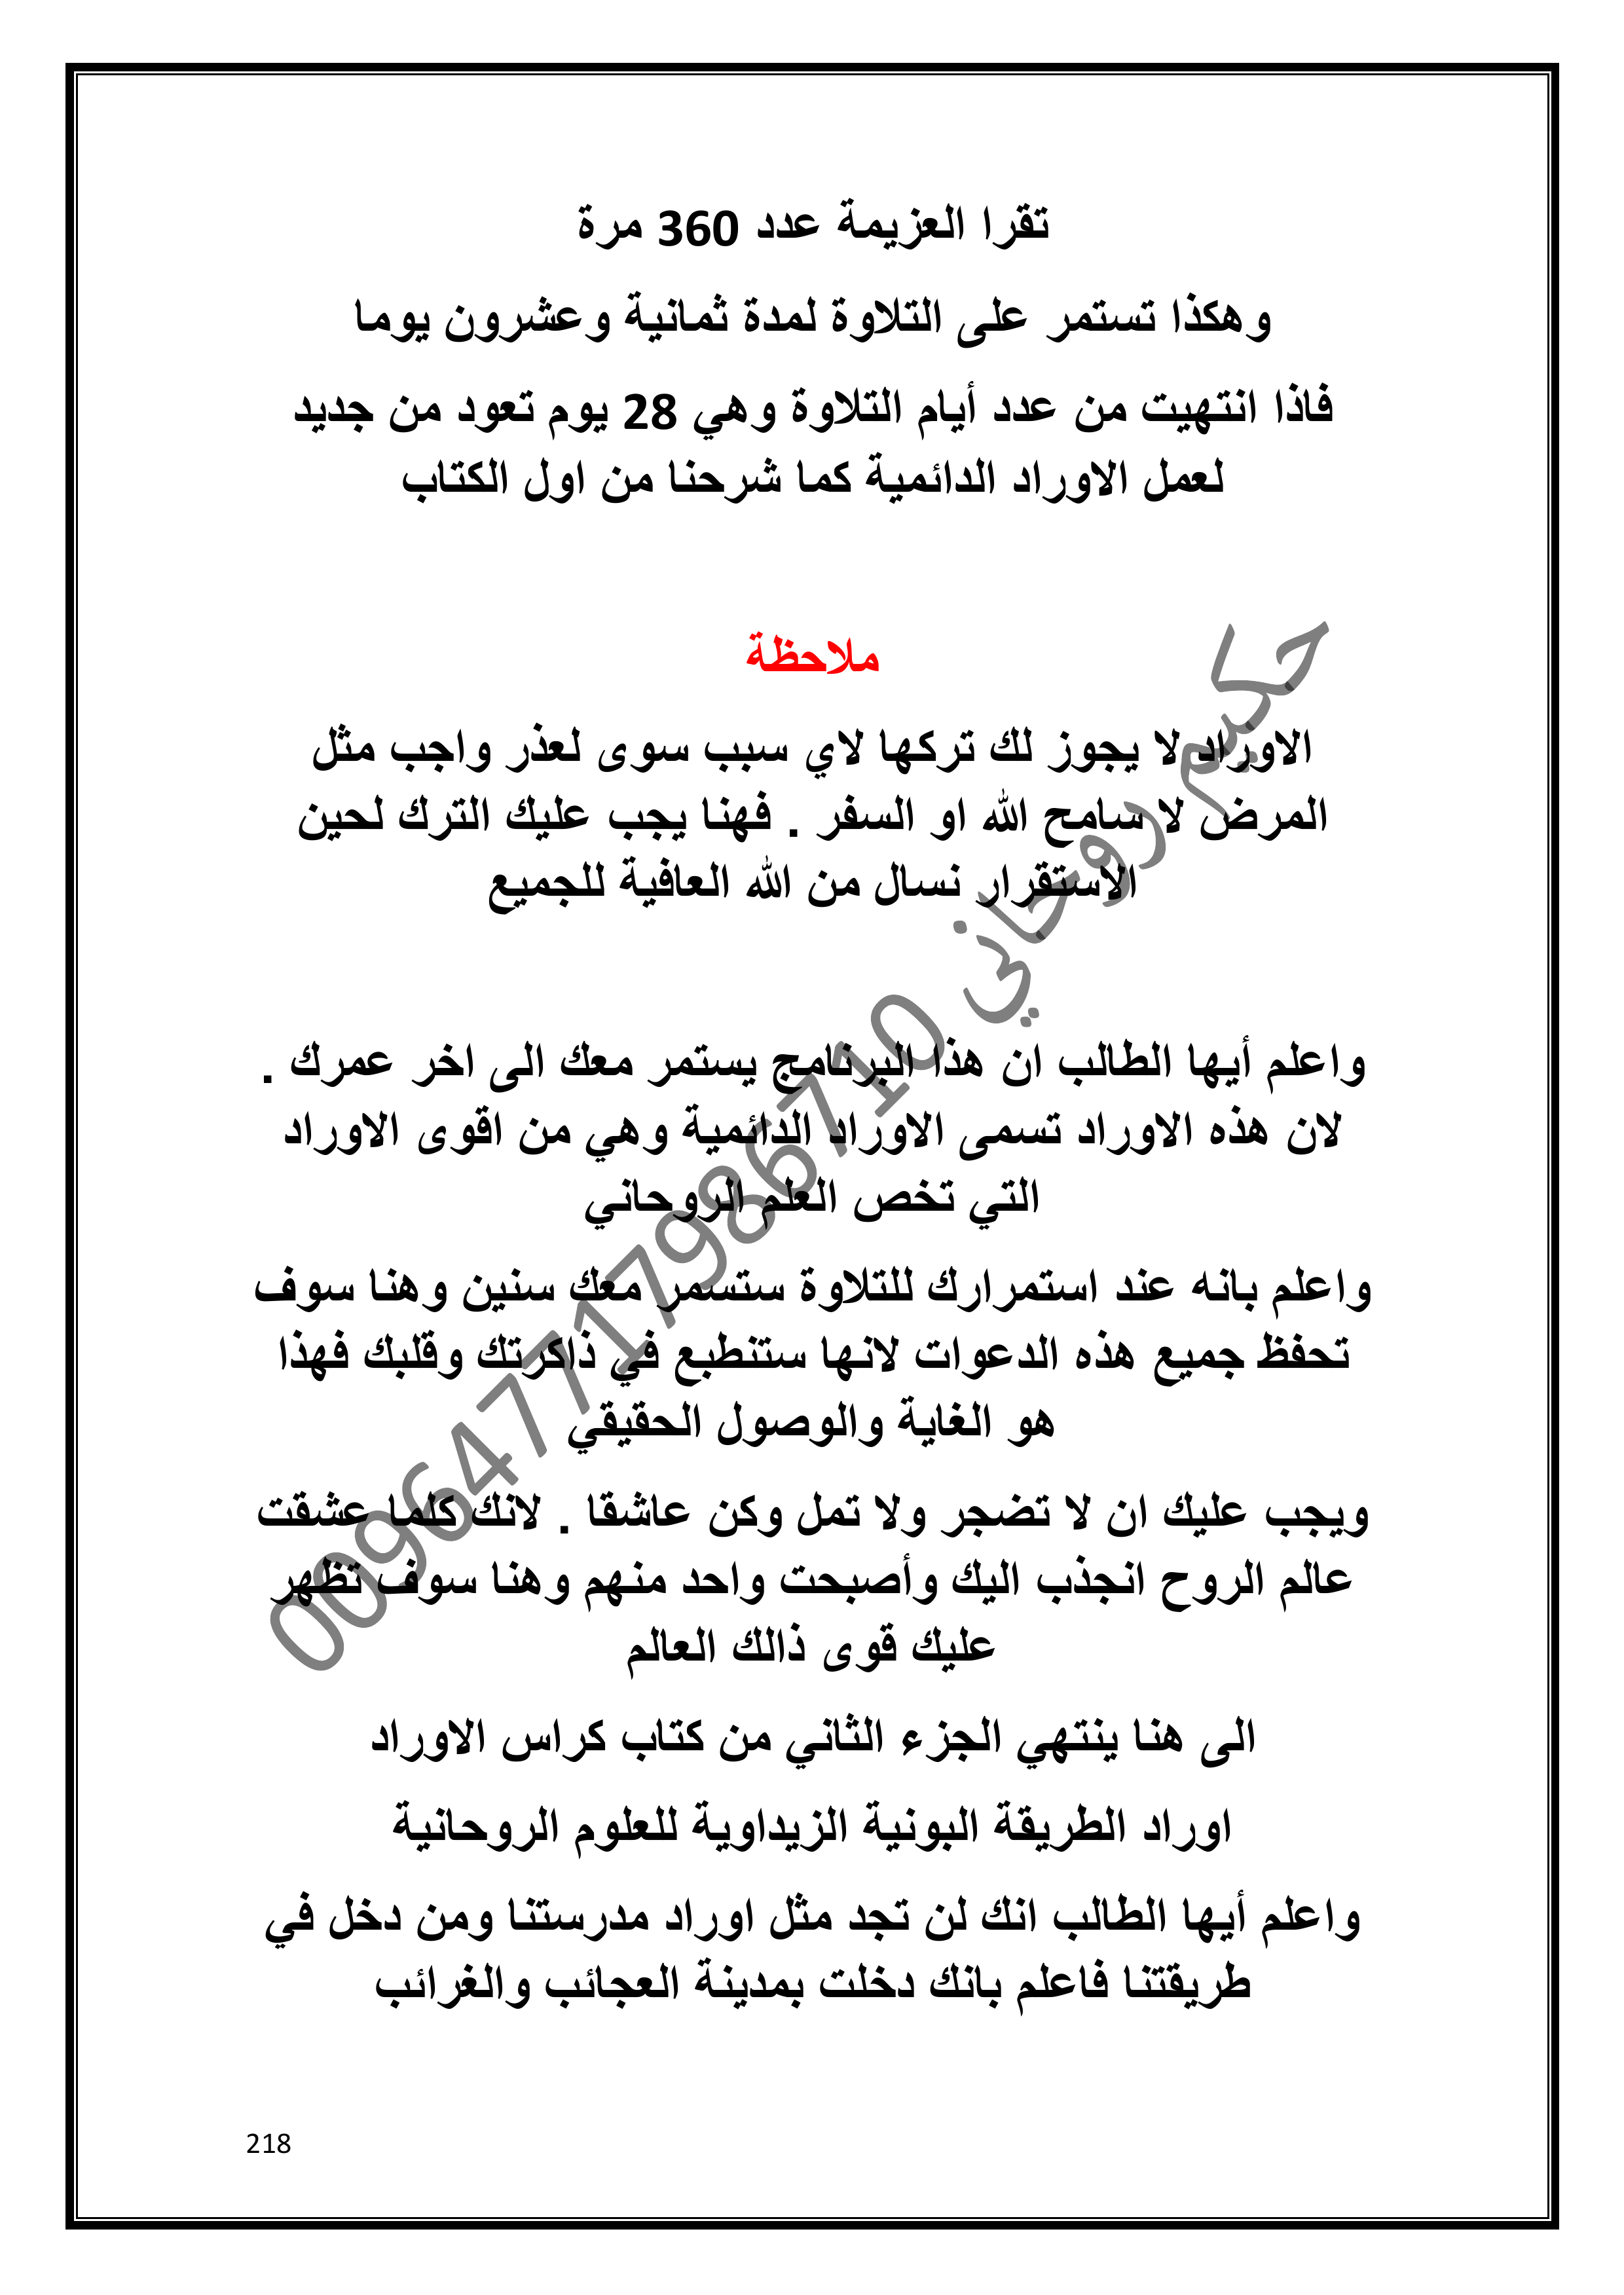 تقرا العزيمة عدد 360 مرة
وهكذا تستمر على التلاوة لمدة ثمانية وعشرون يوما
فاذا انتهيت من عدد أيام التلاوة وهي 28 يوم تعود من جديد
لعمل الاوراد الدائمية كما شرحنا من اول الكتاب
ملاحظة
الاوراد لا يجوز لك تركها لاي سبب سوى لعذر واجب مثل
المرض لا سامح الله او السفر . فهنا يجب عليك الترك لحين
الاستقرار نسال من الله العافية للجميع
واعلم أيها الطالب ان هذا البرنامج يستمر معك الى اخر عمرك .
لان هذه الاوراد تسمى الاوراد الدائمية وهي من اقوى الاوراد
التي تخص العلم الروحاني
واعلم بانه عند استمرارك للتلاوة ستسمر معك سنين وهنا سوف
تحفظ جميع هذه الدعوات لانها ستنطبع في ذاكرتك وقلبك فهذا
هو الغاية والوصول الحقيقي
ويجب عليك ان لا تضجر ولا تمل وكن عاشقا . لانك كلما عشقت
عالم الروح انجذب اليك وأصبحت واحد منهم وهنا سوف تظهر
عليك قوى ذالك العالم
الى هنا ينتهي الجزء الثاني من كتاب كراس الاوراد
اوراد الطريقة البونية الزيداوية للعلوم الروحانية
واعلم أيها الطالب انك لن تجد مثل اوراد مدرستنا ومن دخل في
طريقتنا فاعلم بانك دخلت بمدينة العجائب والغرائب
218
حكيم روحاني 009647717986710